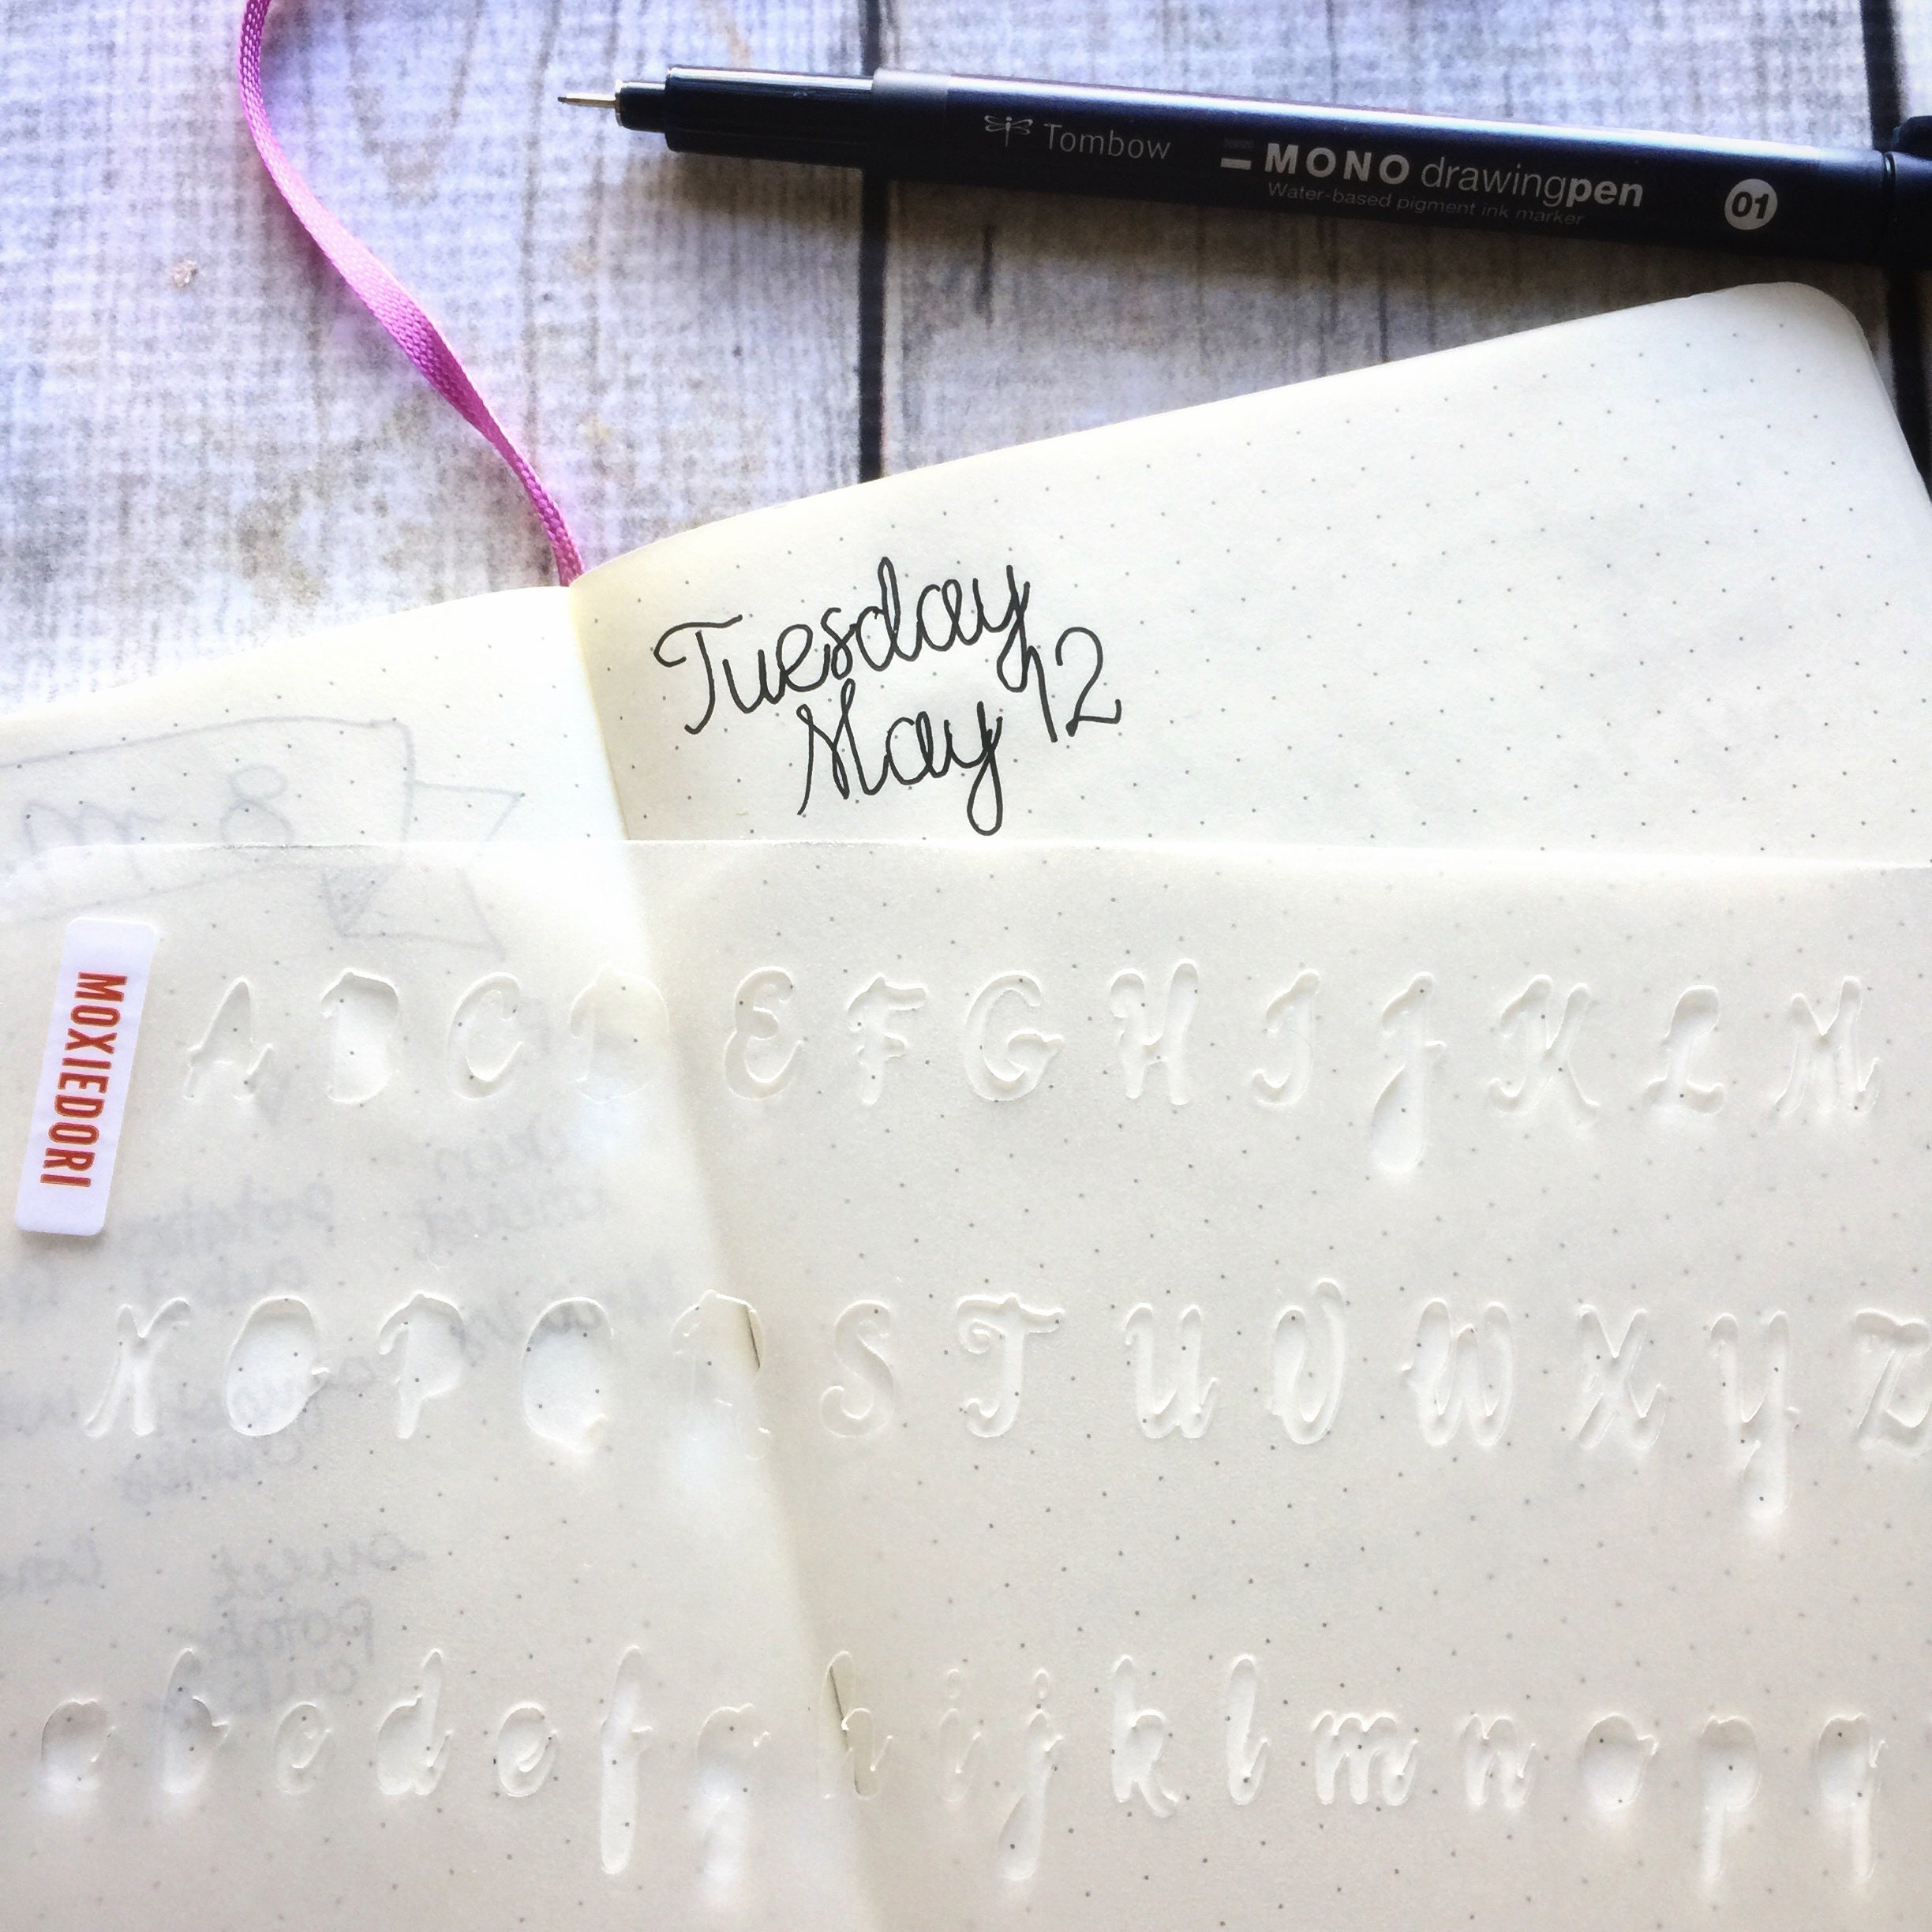 Tombow MONO drawingpen 01
Water-based pigment ink marker
Tuesday
May 12
MOXIEDORI
A B C D E F G H I J K L M
N O P Q R S T U V W X Y Z
a b c d e f g h i j k l m n o p q